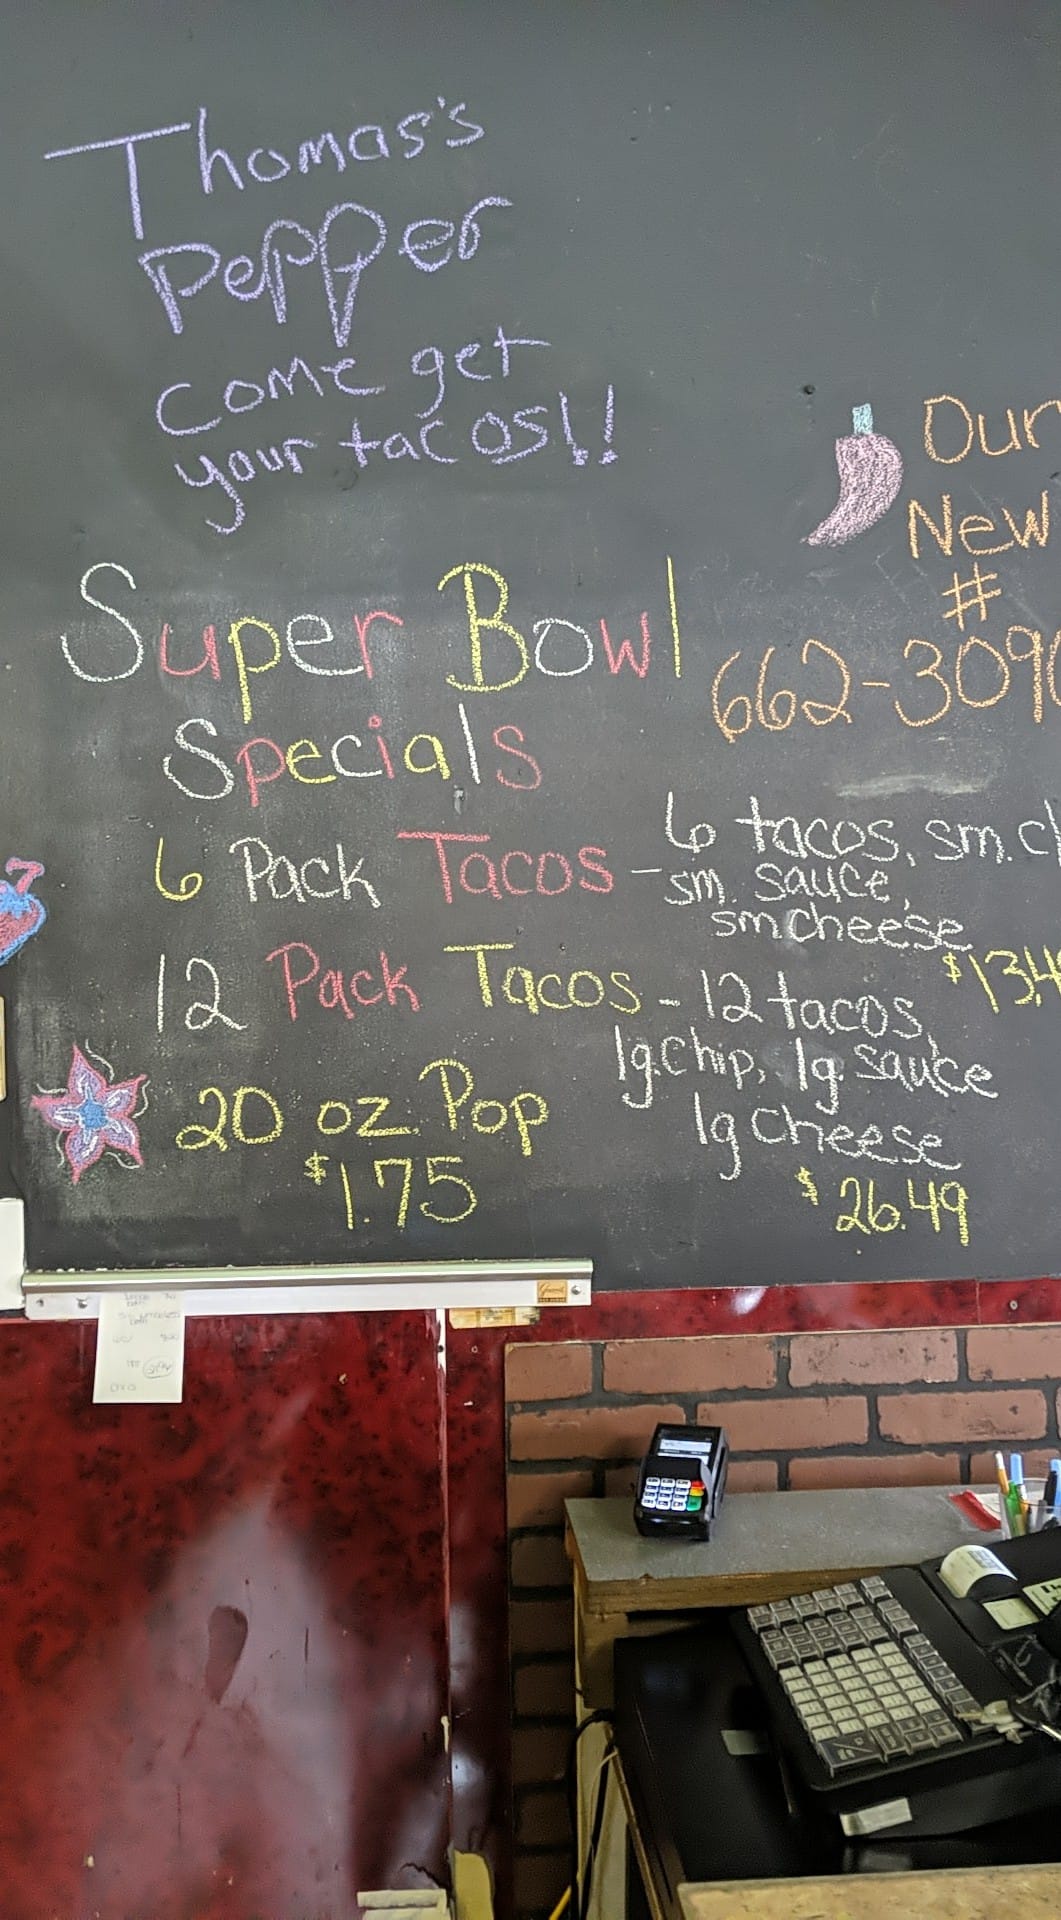 Thomas's
Pepper
come get
your tacos!!
Our
New
#
662-309
Super Bowl
Specials
6 Pack Tacos - 6 tacos, sm.
sm. sauce,
sm cheese
$13.4
12 Pack Tacos - 12 tacos,
lg. chip, lg. sauce
lg cheese
$26.49
20 oz. Pop
$1.75